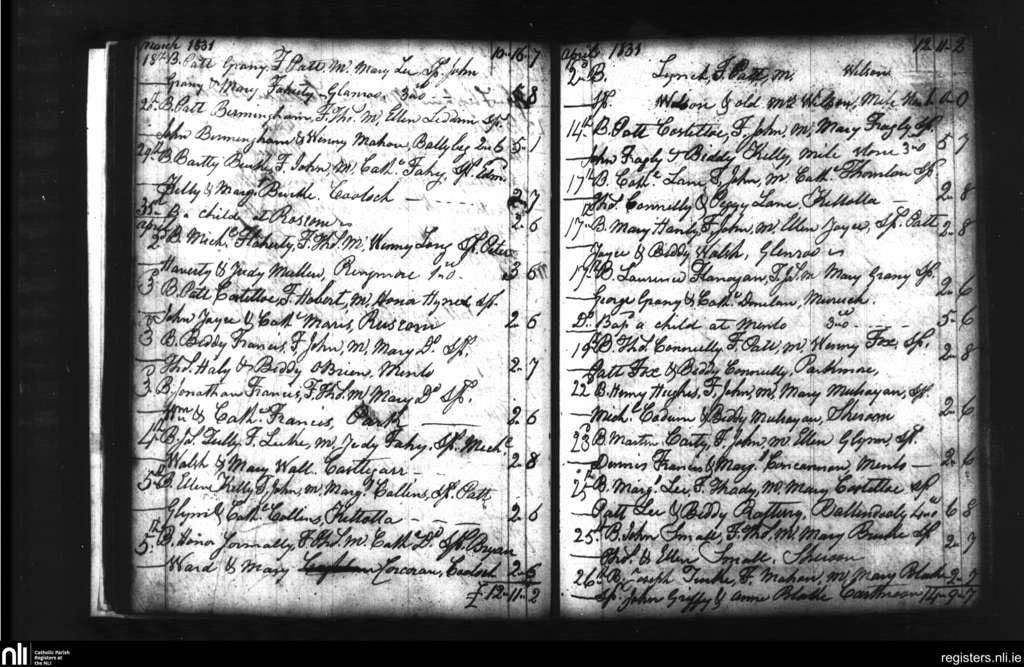 March 1831 10-16-7
18th B. Patt Grany, F. Patt, M. Mary Lee Sp. John
Grany & Mary Faherty - Glanroe, 8
20 B. Patt Birmingham, F. Tho. M. Ellen Leddin Sp.
John Birmingham & Winny Mahon, Ballybeg 2 5-1
B. Bartly Burke, F. John, M. Cath. Fahy, Sp. Edm.
Kelly & Marg. Burke, Cooloch 2-7
B. a child at Roscom 2-6
April
2 B. Mich. Flaherty, F. Tho. M. Winny Long Sp. Peter
Haverty & Judy Mullen, Rinymore 3-6
3 B. Patt Costelloe, F. Hobert, M. Hona Hynes Sp.
John Joyce & Cath. Maris, Roscom 2-6
3 B. Biddy Francis, F. John, M. Mary Do. Sp.
Tho. Haly & Biddy OBrien, Menlo 2-7
3 B. Jonathan Francis, F. Tho. M. Mary Do. Sp.
Wm. & Cath. Francis, Park 2-6
4th B. Lully F. Luke, M. Judy Fahy, Sp. Mich.
Walsh & Mary Wall Castlegarr 2-8
5th B. Ellen Kelly F. John, M. Marg. Collins, Sp. Patt
Glynn & Cath. Collins, Killolla 2-6
5 B. Honor Formally, F. Tho. M. Cath. Do. Sp. Bryan
Ward & Mary Corcoran, Cooloch 2-6
£ 12-11-2
April 1831 12-11-2
2nd B. Lynch, F. Patt, M. Wilson
Sp. Wilson & old Mrs. Wilson, Mile Bush -0
14th B. Patt Costelloe, F. John, M. Mary Fragly Sp.
John Fragly & Biddy Kelly, mile stone 5 7
17th B. Cath. Lane, F. John, M. Cath. Thornton Sp.
Tho. Connelly & Peggy Lane, Killolla 2-8
17th B. Mary Hanly, F. John, M. Ellen Joyce, Sp. Patt
Joyce & Biddy Walsh, Glenroe 2-8
17th B. Laurence Flanagan, F. M. Mary Grany Sp.
George Grany & Cath. Donilan, Murrich. 2-6
Do. Bap. a child at Menlo 5-6
19th B. Tho. Connelly F. Patt, M. Winny Fox, Sp.
Patt Fox & Biddy Connelly, Parkmore, 2-8
22 B. Henry Hughes, F. John, M. Mary Mulryan, Sp.
Mich. Coduin & Biddy Mulryan, 2-6
23 B. Martin Carty, F. John, M. Ellen Glynn, Sp.
Dennis Francis & Marg. Concannon, Menlo 2-6
25 B. Marg. Lee F. Thady, M. Mary Costelloe Sp.
Patt Lee & Biddy Raftery, Ballinduoly 6 8
25th B. John Small, F. Tho. M. Mary Burke Sp.
Tho. & Ellen Small, 2-7
26th B. Joseph Turke, F. Mahon, M. Mary Blake 2-7
Sp. John Griffy & Anne Blake 14-9-7
nli Catholic Parish
Registers at
the NLI
registers.nli.ie